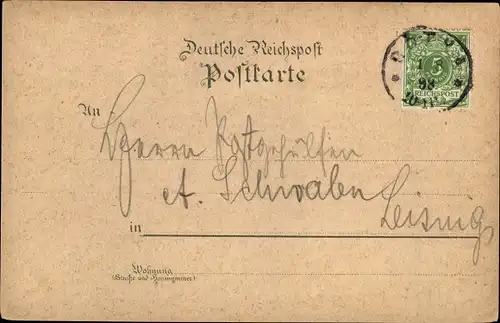 Deutsche Reichspost
Postkarte
5
REICHSPOST
98
An
Herrn Postgehülfen
A. Schwaben
Leisnig
in
Wohnung
(Straße und Hausnummer)